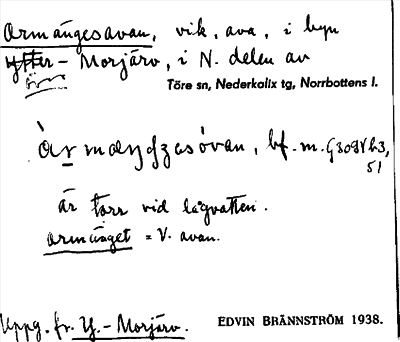 Ormängesavan, vik, ava, i byn
Ytter-Morjärv, i N. delen av
Töre sn, Nederkalix tg, Norrbottens l.
bf. m.
51
är torr vid lågvatten.
ormänget = V. avan.
Uppg. fr. Y.-Morjärv.
EDVIN BRÄNNSTRÖM 1938.